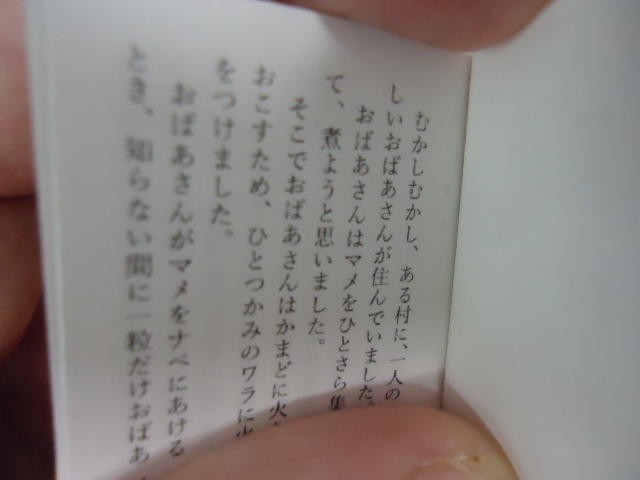 むかしむかし、ある村に、一人の
しいおばあさんが住んでいました。
おばあさんはマメをひとさら集
て、煮ようと思いました。
そこでおばあさんはかまどに火
おこすため、ひとつかみのワラに火
をつけました。
おばあさんがマメをナベにあける
とき、知らない間に一粒だけおばあ